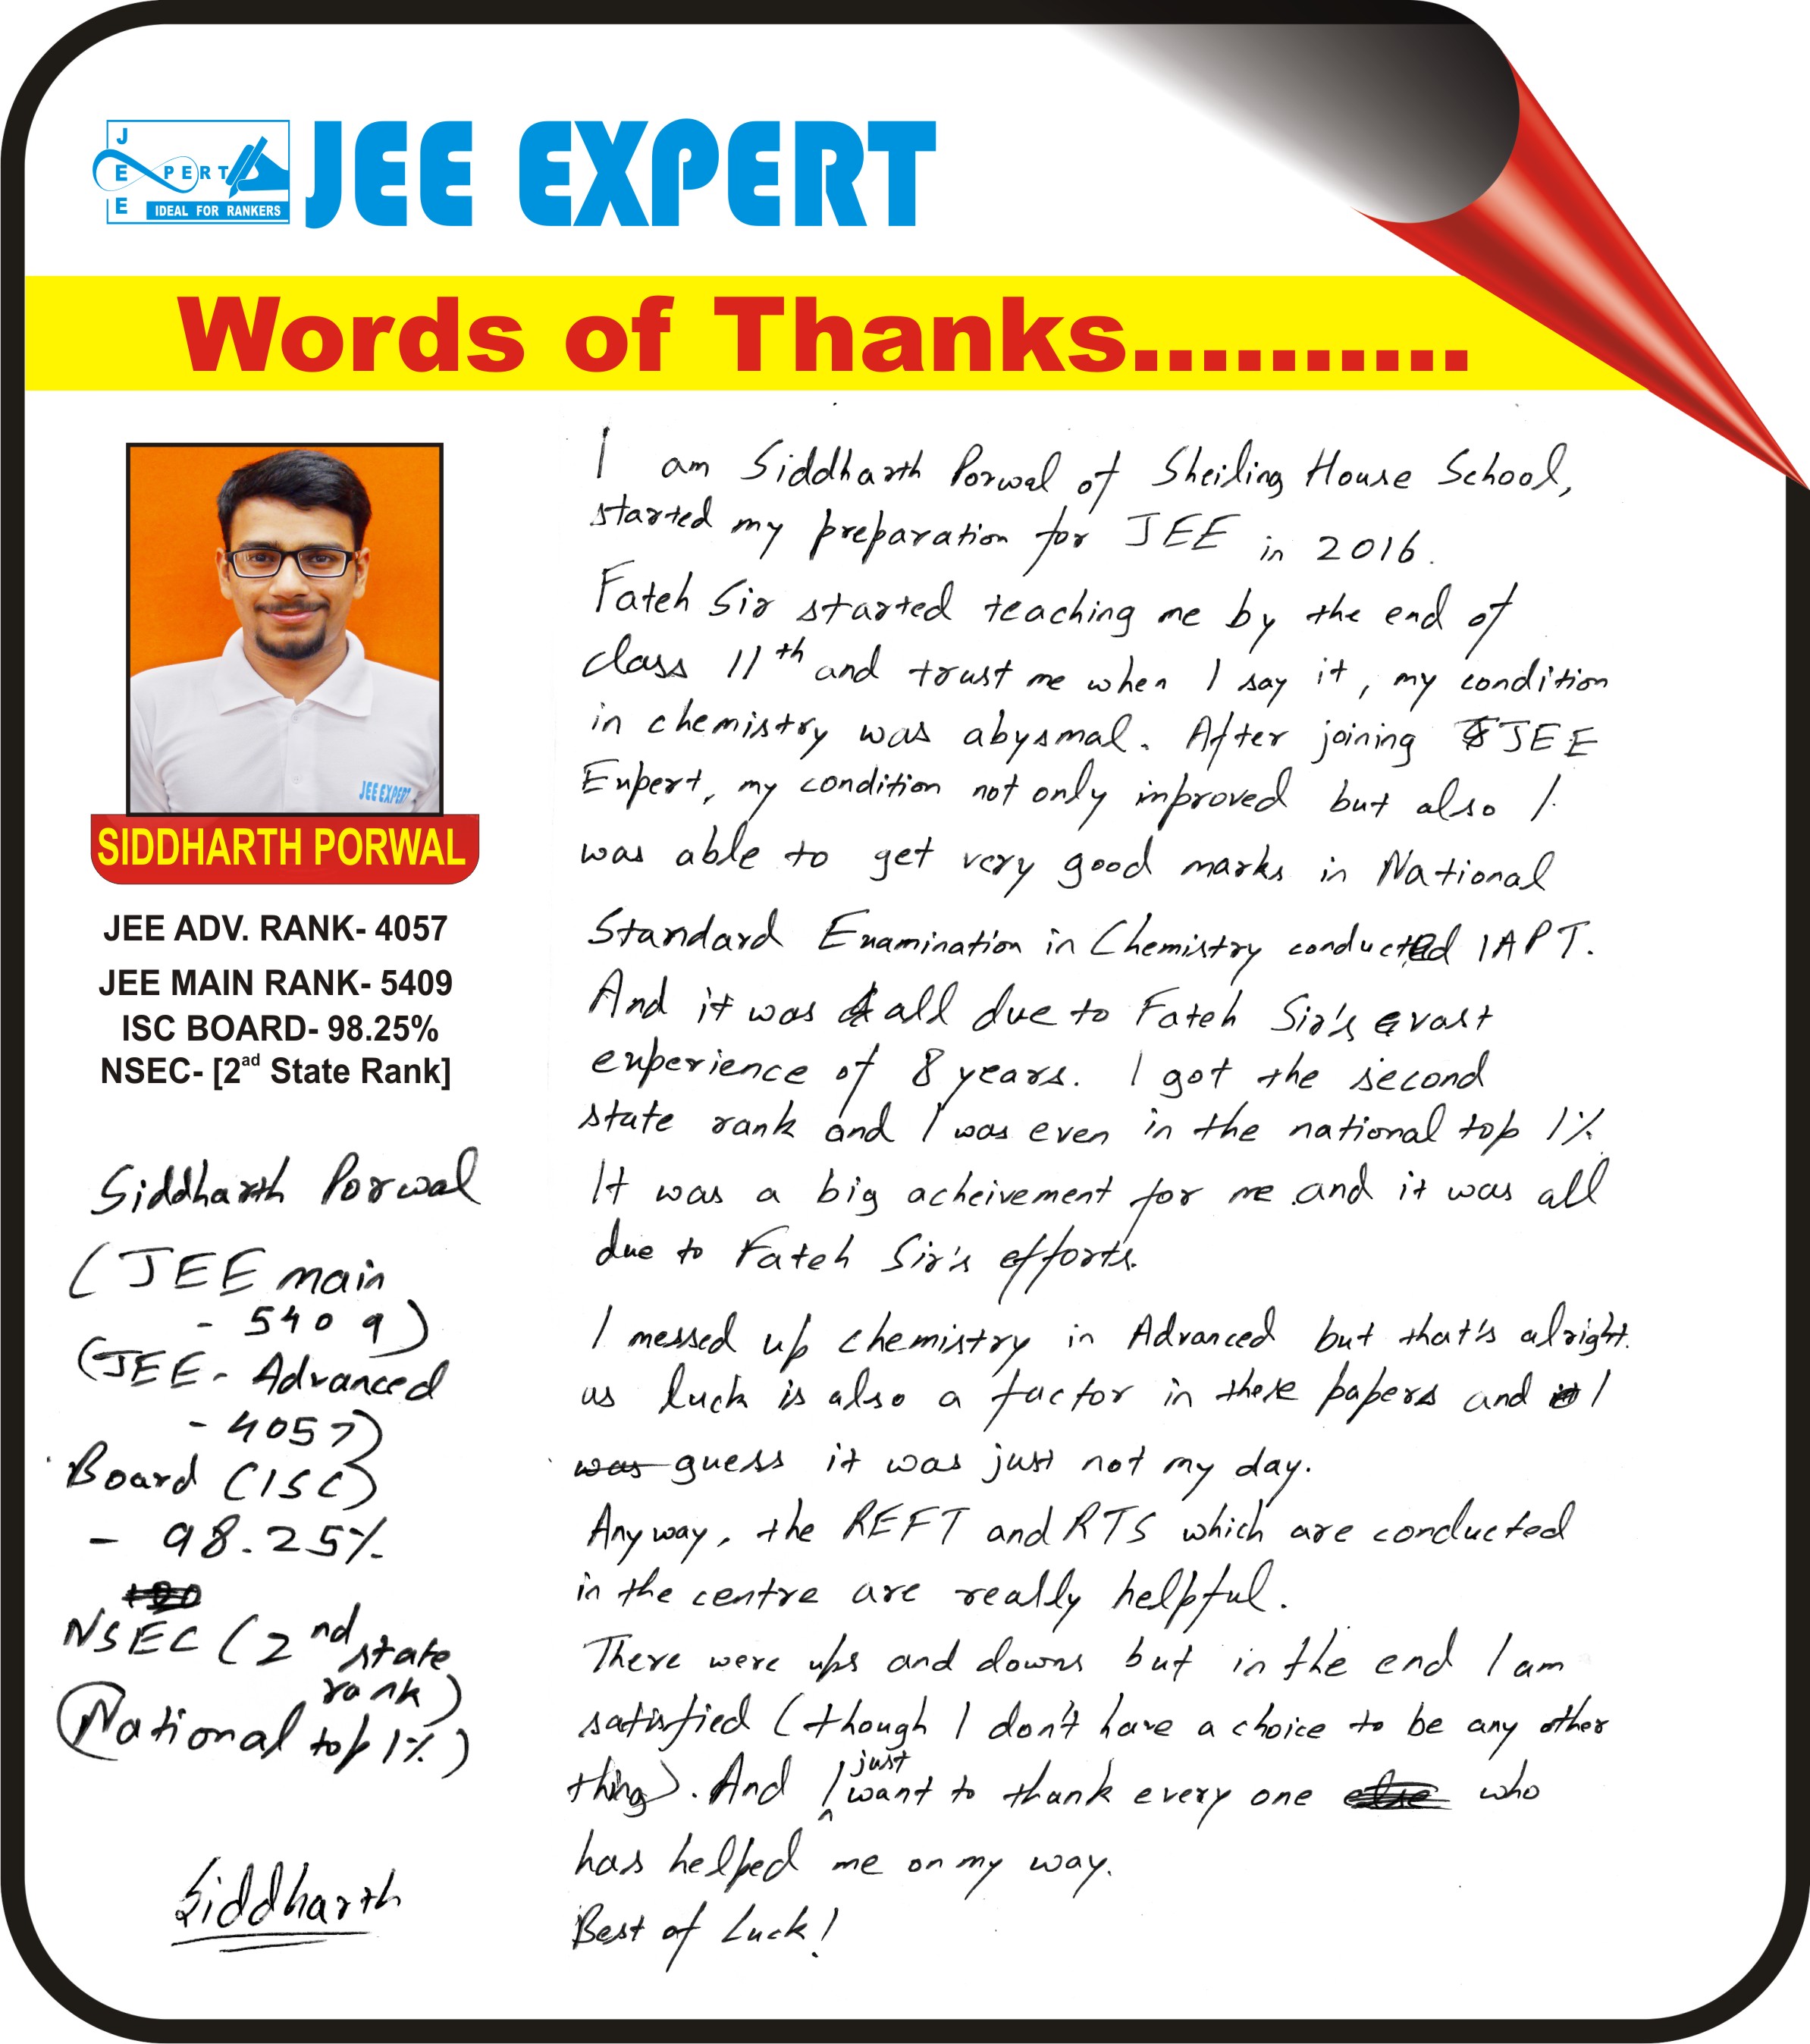 J
E PERT
E IDEAL FOR RANKERS
JEE EXPERT
Words of Thanks..........
JEE EXPERT
SIDDHARTH PORWAL
JEE ADV. RANK- 4057
JEE MAIN RANK- 5409
ISC BOARD- 98.25%
NSEC- [2ad State Rank]
Siddharth Porwal
(JEE main
- 5409)
(JEE - Advanced
- 4057)
Board (ISC)
- 98.25%
NSEC (2nd state
rank)
(National top 1%)
Siddharth
I am Siddharth Porwal of Sheiling House School,
started my preparation for JEE in 2016.
Fateh Sir started teaching me by the end of
class 11th and trust me when I say it, my condition
in chemistry was abysmal. After joining JEE
Expert, my condition not only improved but also I
was able to get very good marks in National
Standard Examination in Chemistry conducted IAPT.
And it was all due to Fateh Sir's vast
experience of 8 years. I got the second
state rank and I was even in the national top 1%
It was a big acheivement for me and it was all
due to Fateh Sir's efforts.
I messed up chemistry in Advanced but that's alright.
as luck is also a factor in these papers and I
was guess it was just not my day.
Anyway, the REFT and RTS which are conducted
in the centre are really helpful.
There were ups and downs but in the end I am
satisfied (though I don't have a choice to be any other
thing). And I just want to thank every one else who
has helped me on my way.
Best of Luck!